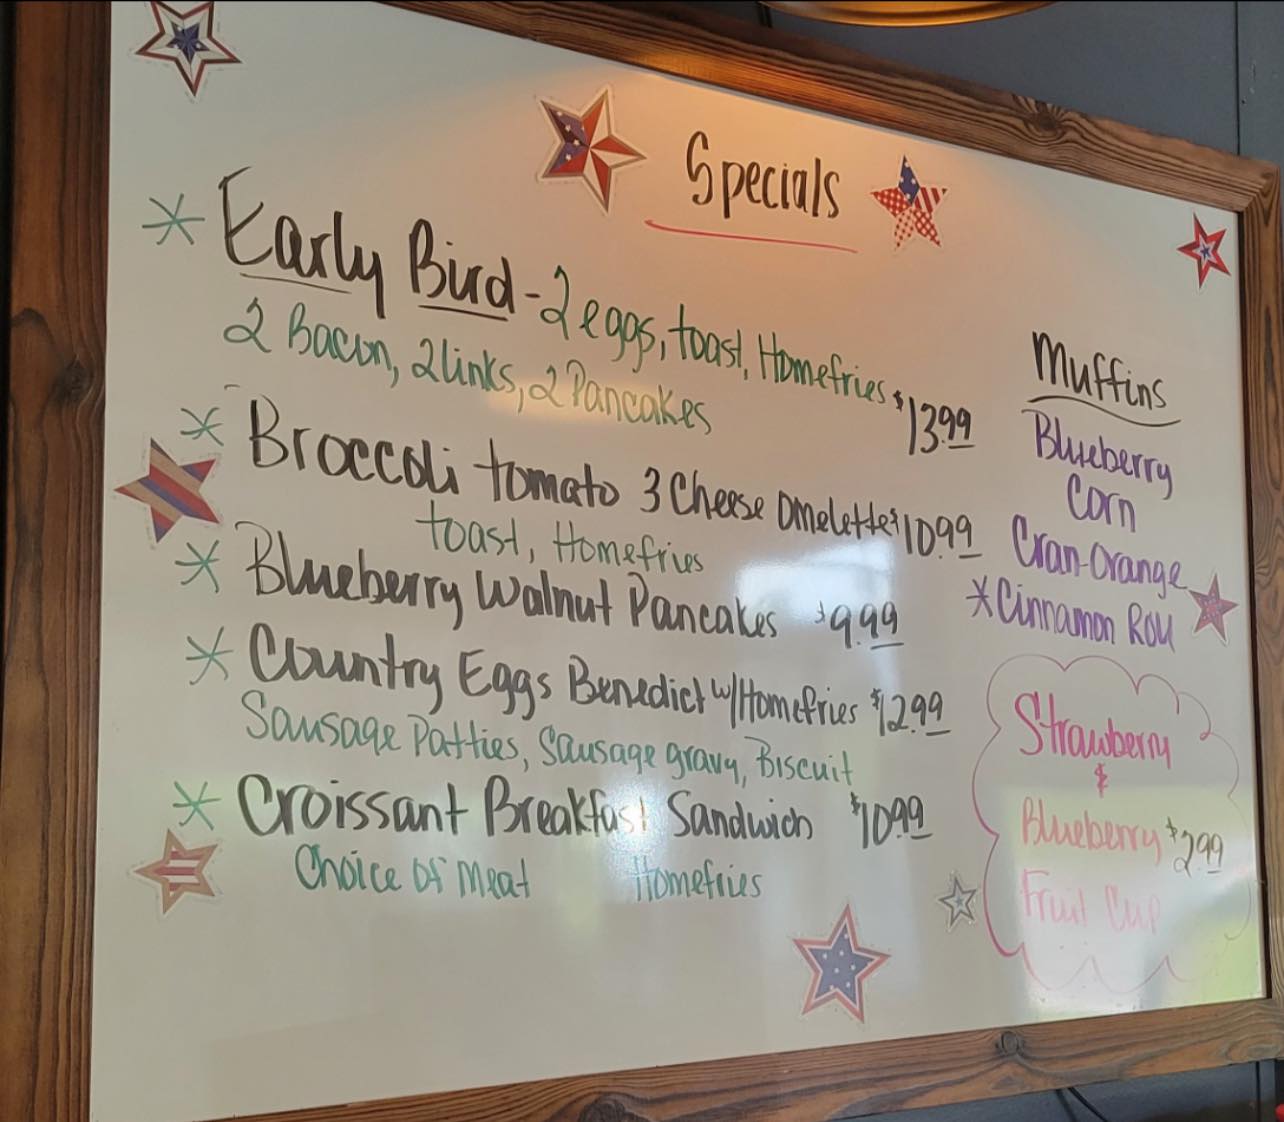 Specials
* Early Bird - 2 eggs, toast, Homefries
2 Bacon, 2 links, 2 Pancakes $13.99
* Broccoli tomato 3 Cheese Omelette $10.99
toast, Homefries
* Blueberry Walnut Pancakes $9.99
* Country Eggs Benedict w/Homefries $12.99
Sausage Patties, Sausage gravy, Biscuit
* Croissant Breakfast Sandwich $10.99
Choice Of Meat Homefries
Muffins
Blueberry
Corn
Cran-Orange
* Cinnamon Roll
Strawberry
&
Blueberry $2.99
Fruit Cup